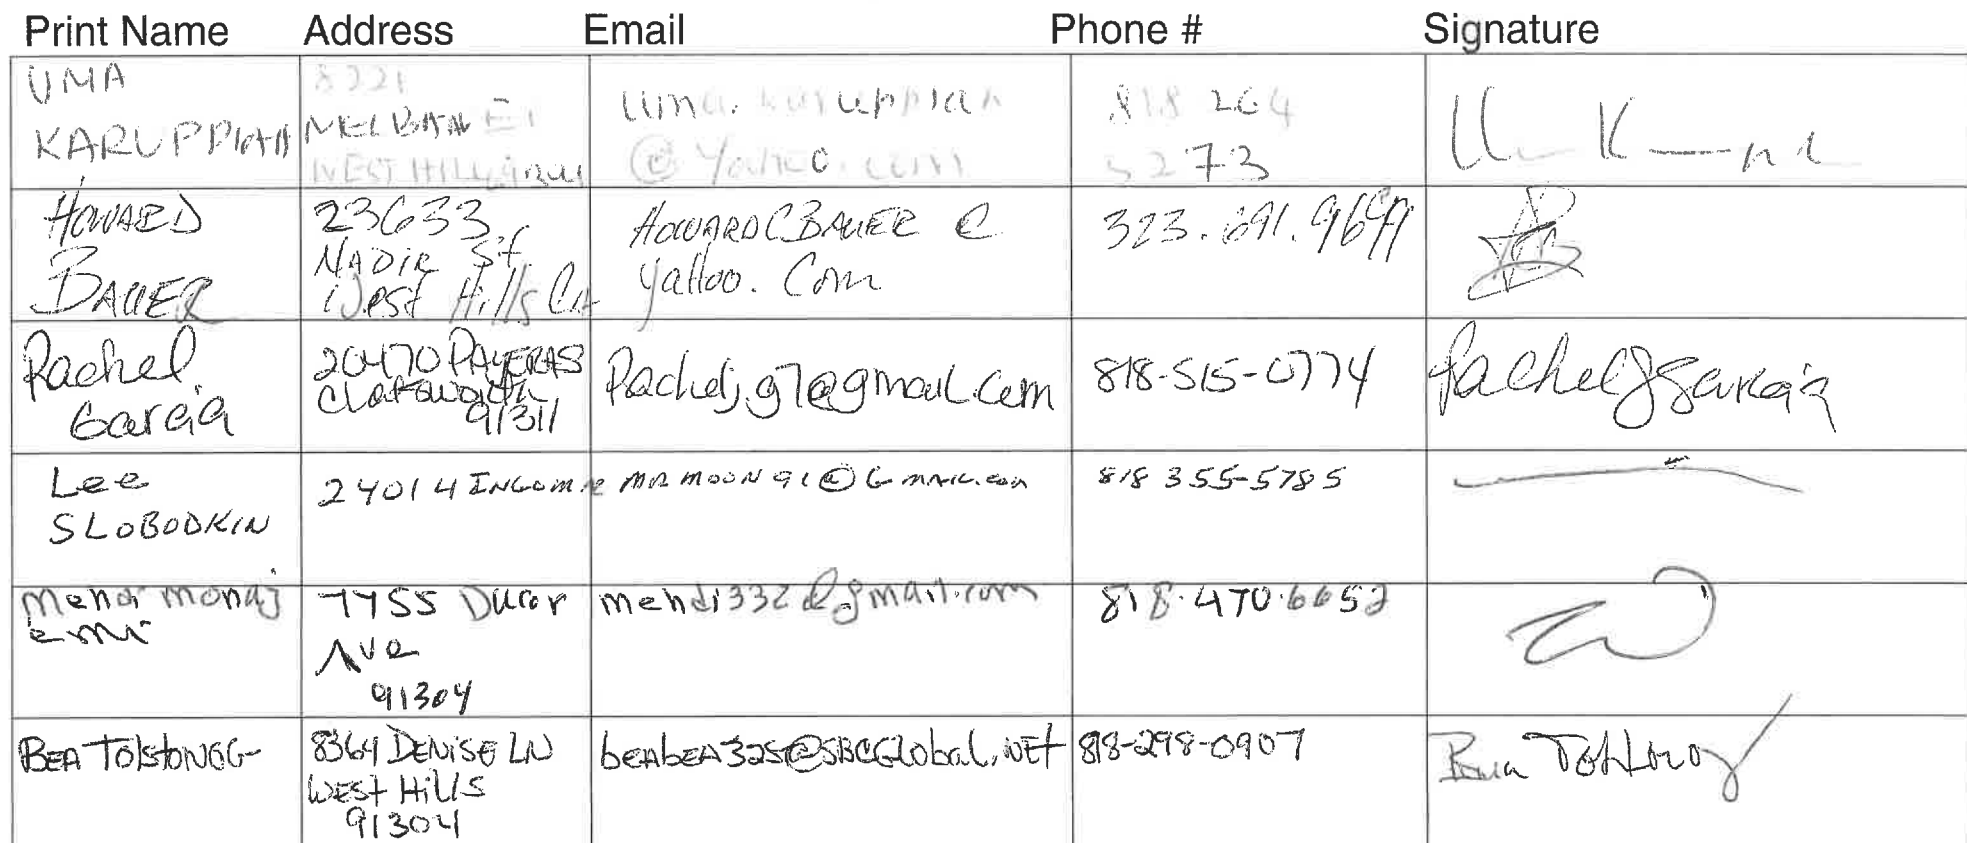 Print Name Address Email Phone # Signature
UMA
KARUPPIAH
8321
MELBA
WEST HILLS
uma. karuppiah
@ yahoo. com
818 264
5273
HOWARD
BAUER
23633
NADIR St.
West Hills CA
HOWARDCBAUER @
yahoo. Com
323.691.9699
Rachel
Garcia
20470 PAYERAS
Chatsworth
91311
Rachelj.g7@gmail.com
818-515-0774
Rachel J Garcia
Lee
SLOBODKIN
24014 INGOMAR
MRMOON91@Gmail.com
818 355-5785
Mehdi monaj
emi
7755 Ducor
Ave
91304
mehdi332@gmail.com
818.470.6652
BEA TOlstONOG
8364 DENISE LN
WEST Hills
91304
beAbeA325@SBCGlobal.NET
818-298-0907
Bea